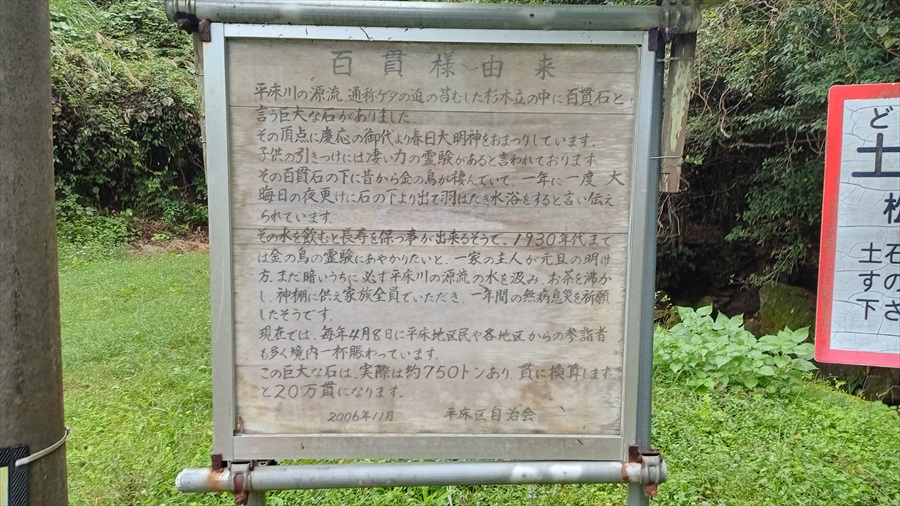 百貫様由来
平床川の源流、通称ケタの迫の苔むした杉木立の中に百貫石と
言う巨大な石がありました
その頂点に慶応の御代より春日大明神をおまつりしています。
子供の引きつけには凄い力の霊験があると言われております
その百貫石の下に昔から金の鳥が棲んでいて、一年に一度、大
晦日の夜更けに石の下より出て羽ばたき水浴をすると言い伝え
られています。
その水を飲むと長寿を保つ事が出来るそうで、1930年代まで
は金の鳥の霊験にあやかりたいと、一家の主人が元旦の明け
方、まだ暗いうちに必ず平床川の源流の水を汲み、お茶を沸か
し、神棚に供え家族全員でいただき、一年間の無病息災を祈願
したそうです。
現在では、毎年4月8日に平床地区民や各地区からの参詣者
も多く境内一杯賑わっています。
この巨大な石は、実際は約750トンあり、貫に換算します
と20万貫になります。
2006年11月 平床区自治会
ど
土
松
土石
すの
下さ